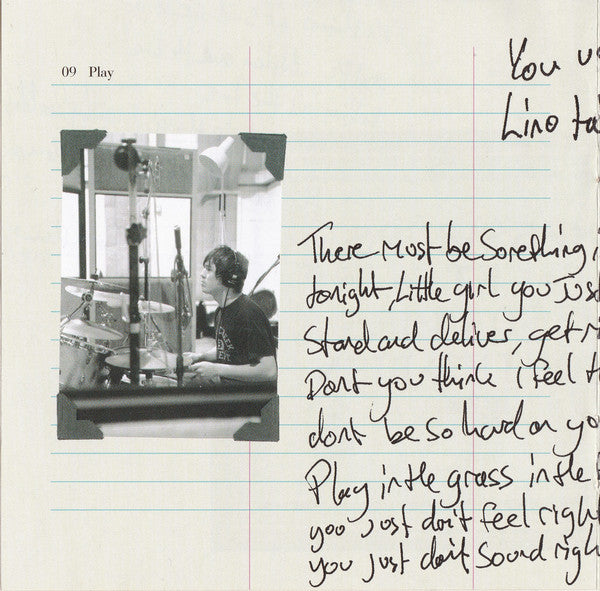 09 Play
You
Lino
There must be Something
tonight, Little girl you Just
Stand and deliver, get
Dont you think i feel
dont be so hard on
Play in the grass in the
you just don't feel right
you just don't sound right